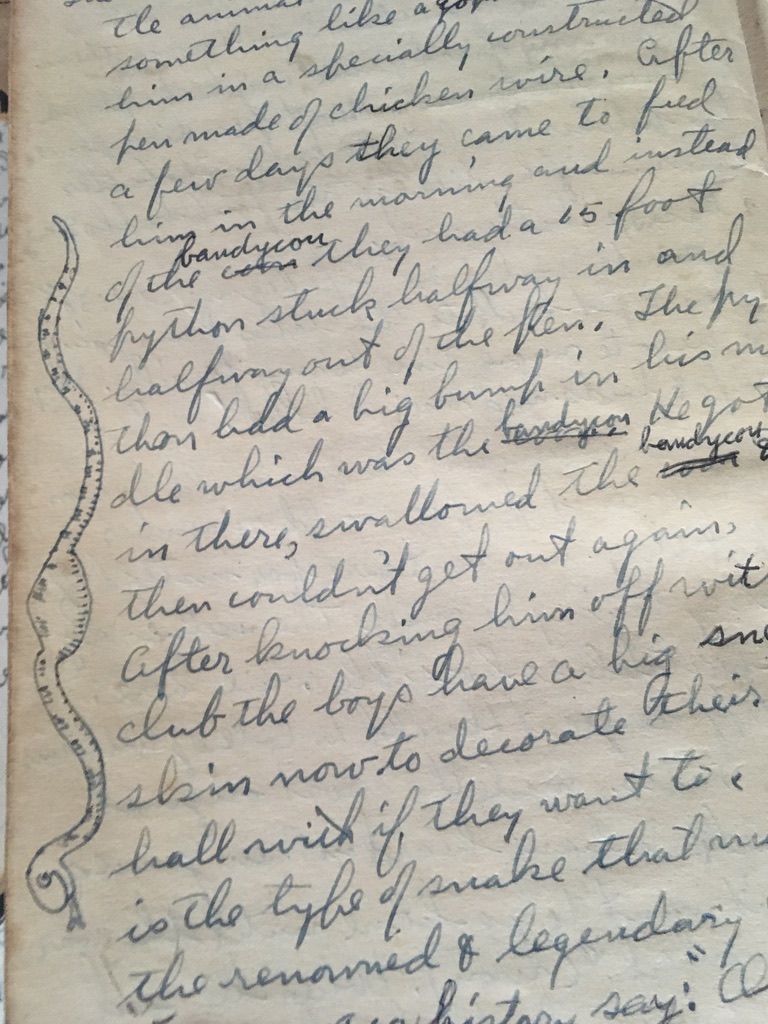 the animal
something like a
him in a specially constructed
pen made of chicken wire. After
a few days they came to feed
him in the morning and instead
of the bandycou they had a 15 foot
python stuck halfway in and
halfway out of the pen. The py
thon had a big bump in his m
dle which was the bandycou He got
in there, swallowed the bandycou &
then couldn't get out again.
After knocking him off wit
club the boys have a big sn
skin now to decorate their
hall with if they want to.
is the type of snake that m
the renowned & legendary
history say:"